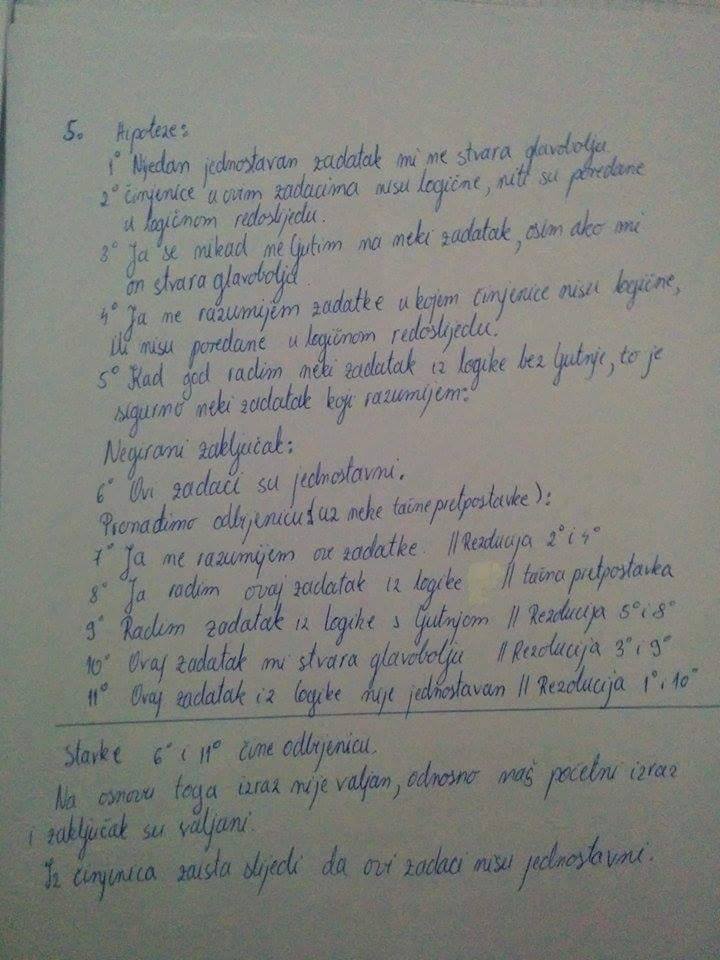 5. Hipoteze:
1° Nijedan jednostavan zadatak mi ne stvara glavobolju
2° činjenice u ovim zadacima nisu logične, niti su poredane
u logičnom redoslijedu.
3° Ja se nikad ne ljutim na neki zadatak, osim ako mi
on stvara glavobolju
4° Ja ne razumijem zadatke u kojem činjenice nisu logične,
ili nisu poredane u logičnom redoslijedu.
5° Kad god radim neki zadatak iz logike bez ljutnje, to je
sigurno neki zadatak koji razumijem.
Negirani zaključak:
6° Ovi zadaci su jednostavni.
Pronađimo odbijenicu (uz neke tačne pretpostavke):
7° Ja ne razumijem ove zadatke. || Rezolucija 2° i 4°
8° Ja radim ovaj zadatak iz logike || tačna pretpostavka
9° Radim zadatak iz logike s ljutnjom || Rezolucija 5° i 8°
10° Ovaj zadatak mi stvara glavobolju || Rezolucija 3° i 9°
11° Ovaj zadatak iz logike nije jednostavan || Rezolucija 1° i 10°
Stavke 6° i 11° čine odbijenicu.
Na osnovu toga izraz nije valjan, odnosno naš početni izraz
i zaključak su valjani.
Iz činjenica zaista slijedi da ovi zadaci nisu jednostavni.